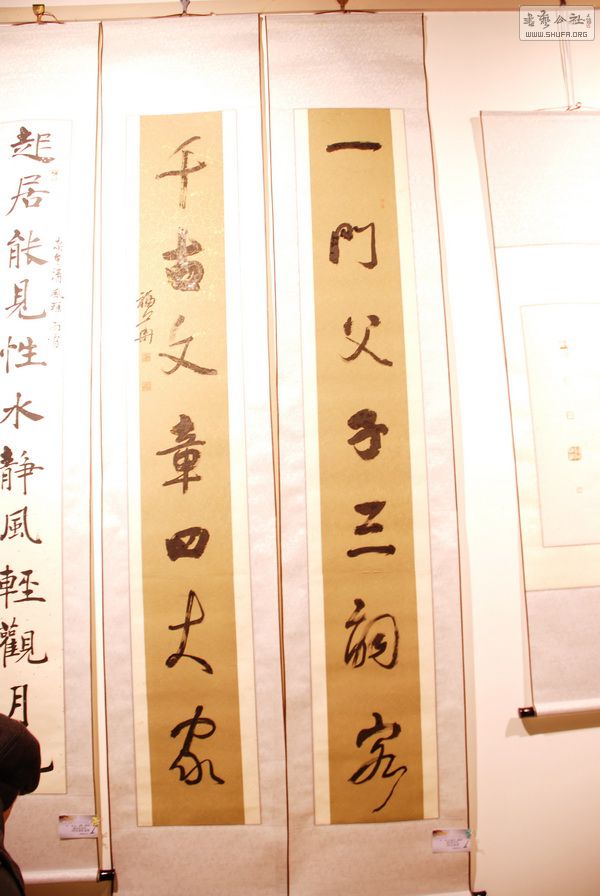 一門父子三詞客
千古文章四大家
起居能見性水靜風輕觀月
書藝公社
WWW.SHUFA.ORG